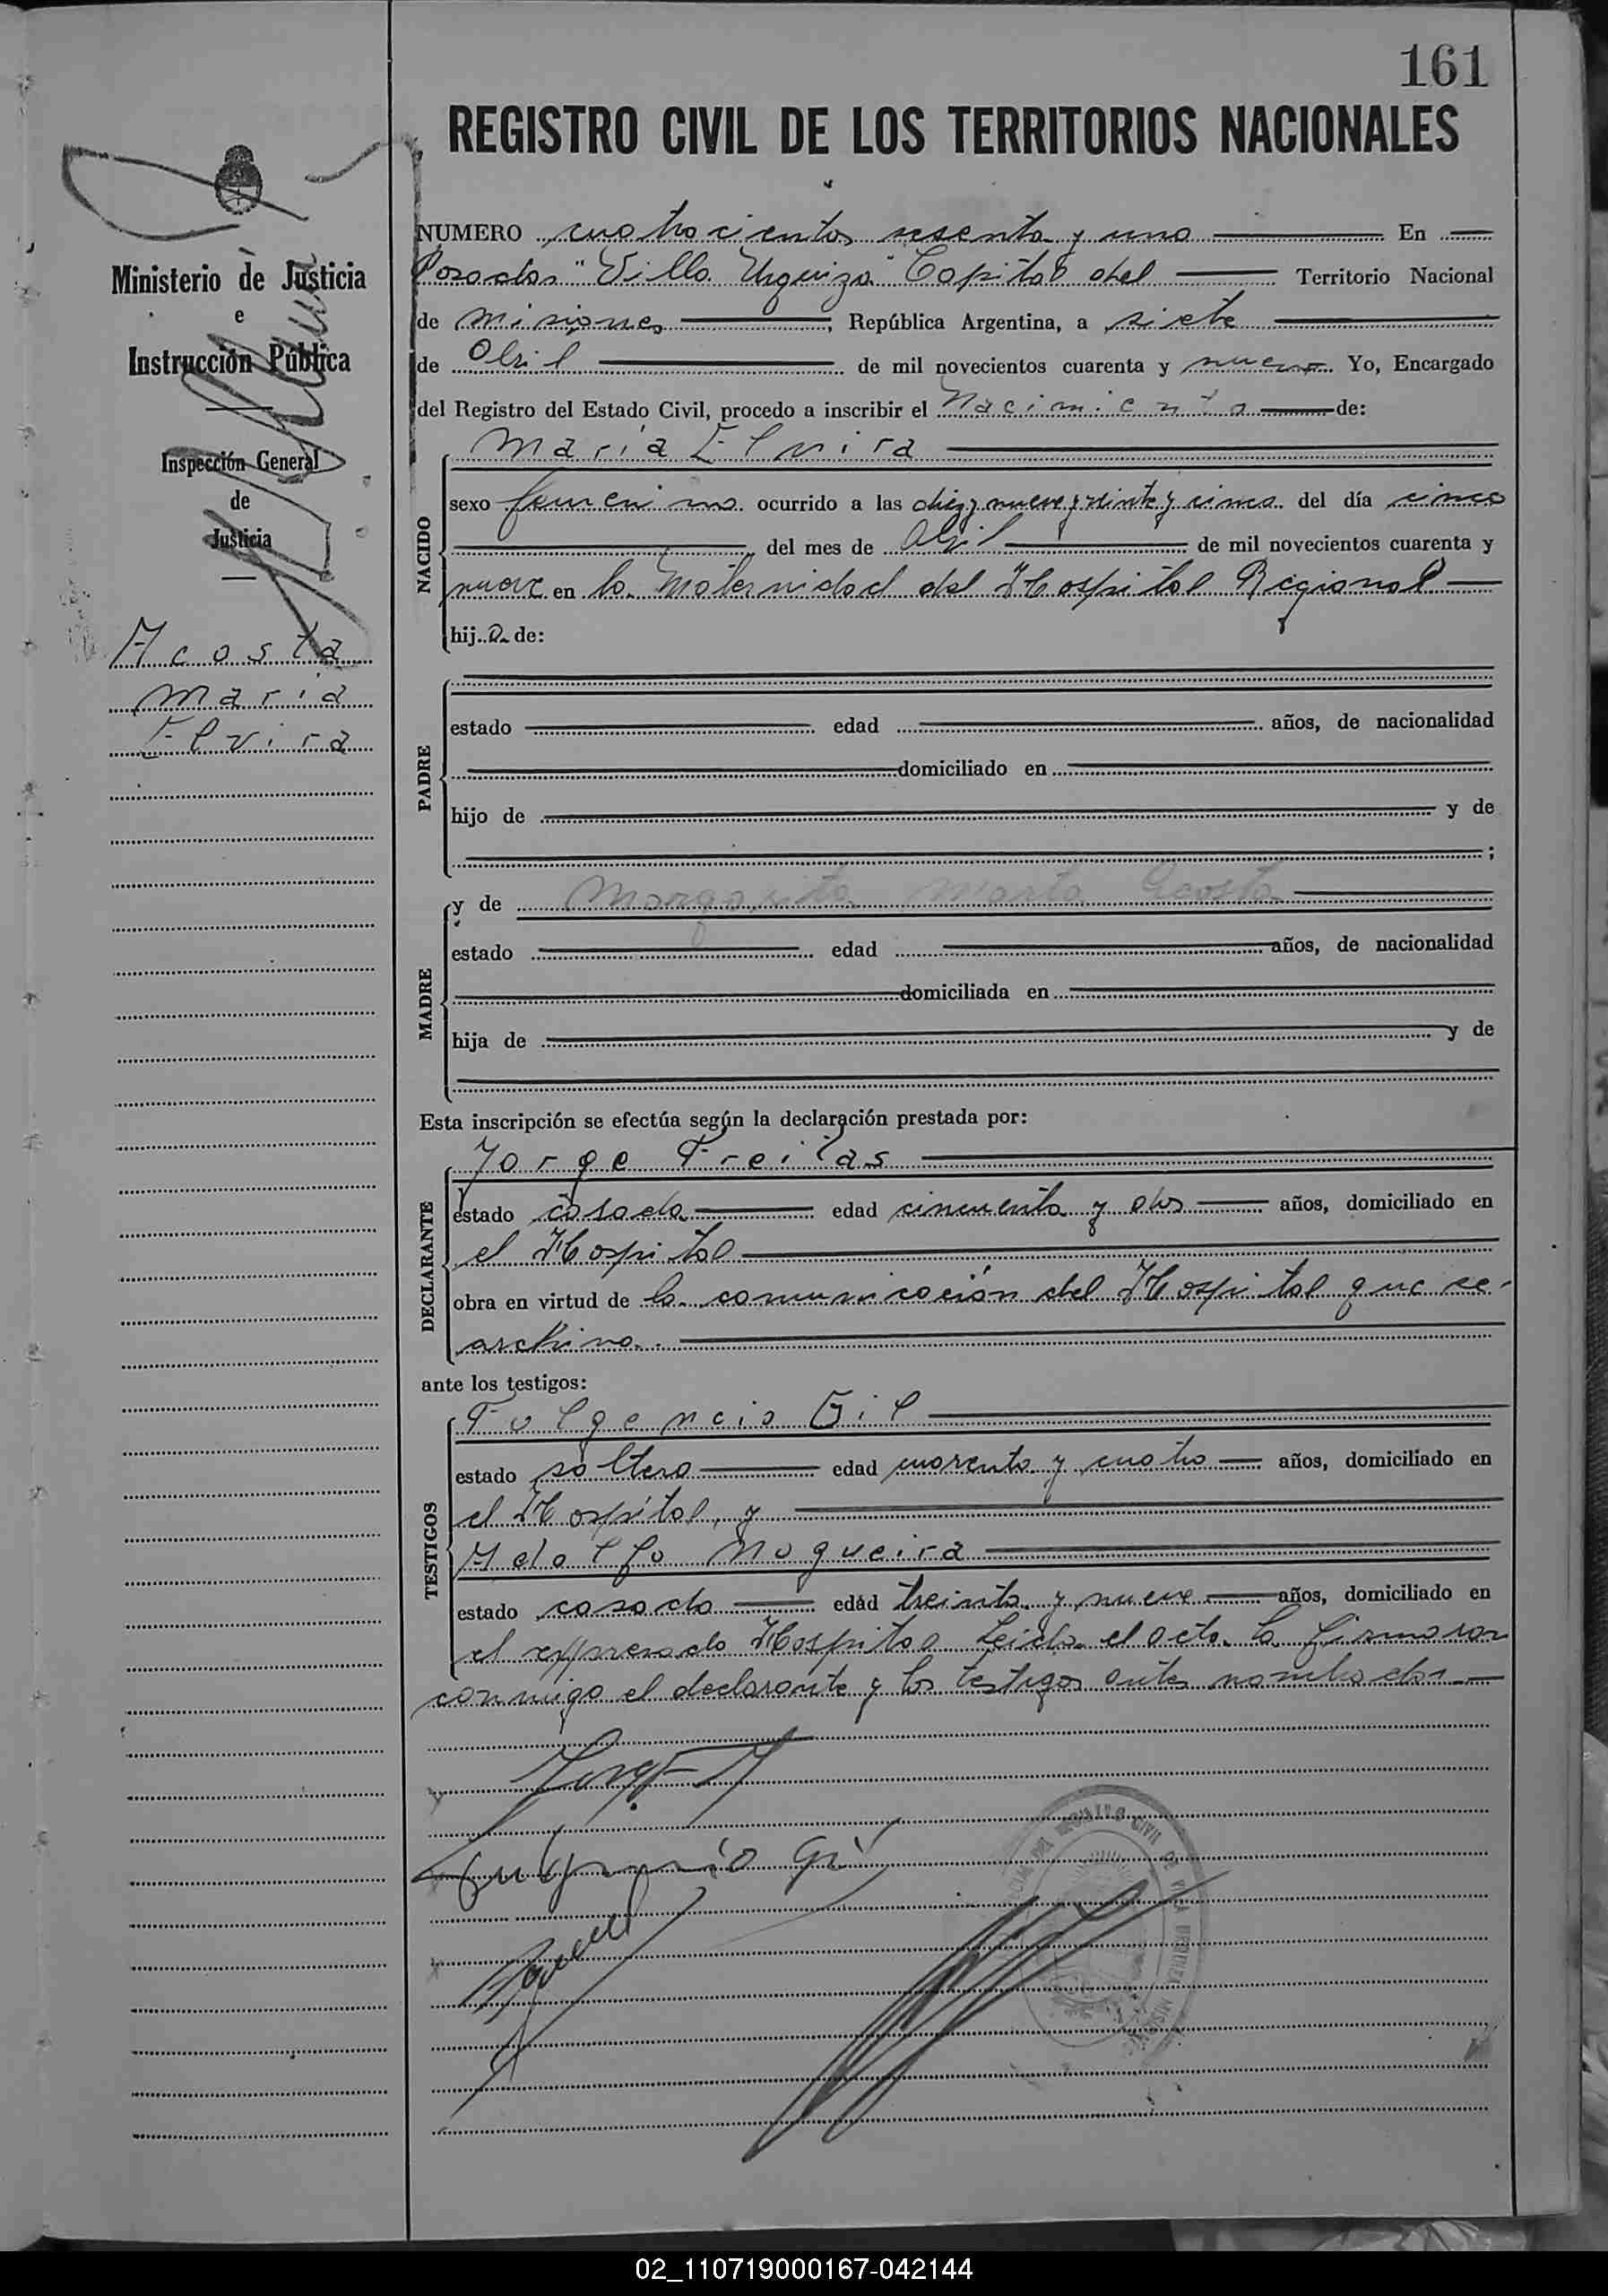 161
REGISTRO CIVIL DE LOS TERRITORIOS NACIONALES
Ministerio de Justicia
e
Instrucción Pública
Inspección General
de
Justicia
Acosta
María
Elvira
NUMERO cuatrocientos sesenta y uno En
Posadas "Villa Urquiza" Capital del Territorio Nacional
de Misiones, República Argentina, a siete
de Abril de mil novecientos cuarenta y nueve Yo, Encargado
del Registro del Estado Civil, procedo a inscribir el Nacimiento de:
María Elvira
NACIDO
sexo femenino ocurrido a las diez y nueve y veinte y cinco del día cinco
del mes de Abril de mil novecientos cuarenta y
nueve en la Maternidad del Hospital Regional
hija de:
PADRE
estado edad años, de nacionalidad
domiciliado en
hijo de y de
;
MADRE
y de Margarita Marta Acosta
estado edad años, de nacionalidad
domiciliada en
hija de y de
Esta inscripción se efectúa según la declaración prestada por:
DECLARANTE
Jorge Freitas
estado casado edad cincuenta y dos años, domiciliado en
el Hospital
obra en virtud de la comunicación del Hospital que se
archiva.
ante los testigos:
TESTIGOS
Fulgencio Gil
estado soltero edad cuarenta y cuatro años, domiciliado en
el Hospital, y
Adolfo Nogueira
estado casado edad treinta y nueve años, domiciliado en
el expresado Hospital Leida el acta la firmaron
conmigo el declarante y los testigos antes nombrados.
Fulgencio Gil
REGISTRO CIVIL DE VILLA URQUIZA
02_110719000167-042144